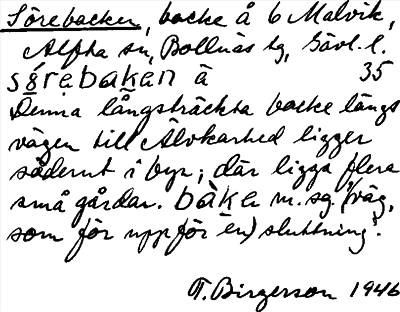 Sörebacken, backe å 6 Malvik,
Alfta sn, Bollnäs tg, Gävl. l.
sǿrebakan ä 35
Denna långsträckta backe längs
vägen till Älvkarhed ligger
söderut i byn; där ligga flera
små gårdar. bàkɐ m. sg. (väg,
som för uppför en) sluttning!
T. Birgerson 1946